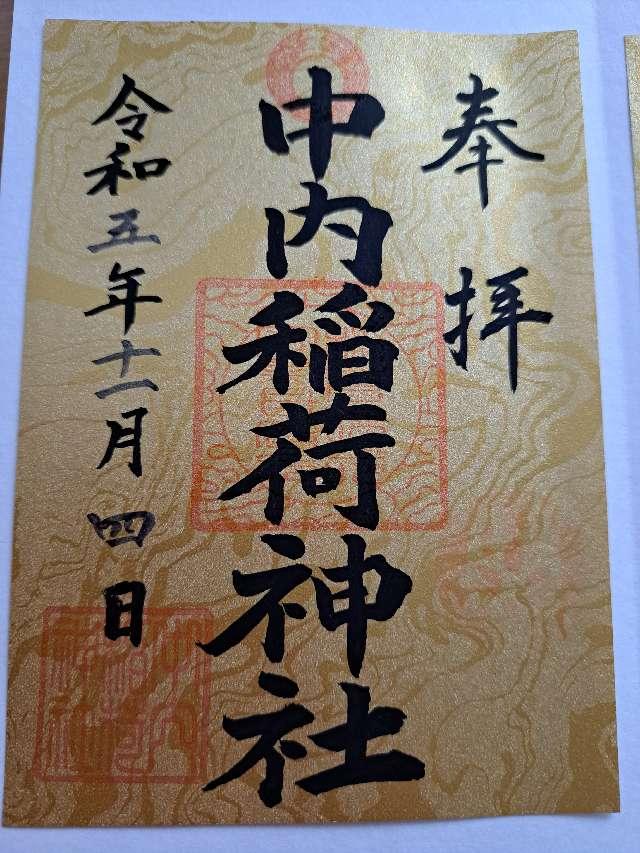 奉拝
中内稲荷神社
令和五年十一月四日